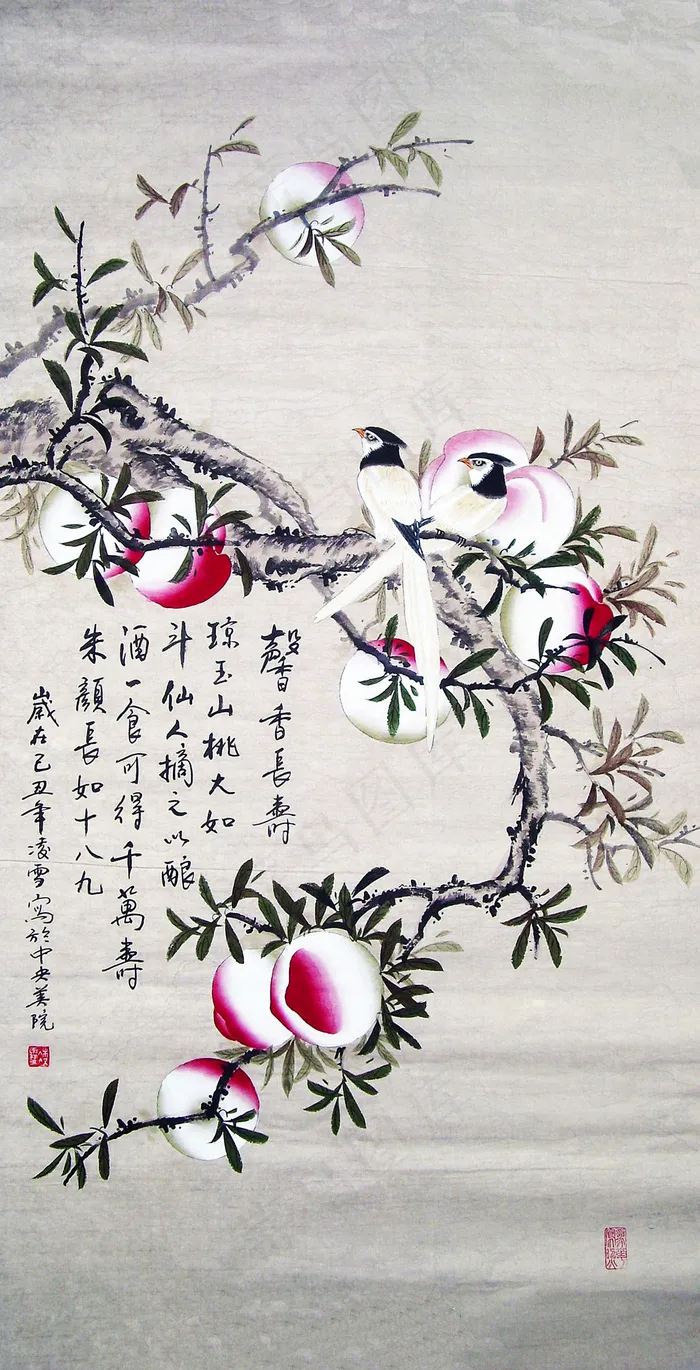 馨香長壽
琼玉山桃大如
斗仙人摘之以酿
酒一食可得千萬壽
朱顏長如十八九
歲在己丑年凌雪寫於中央美院